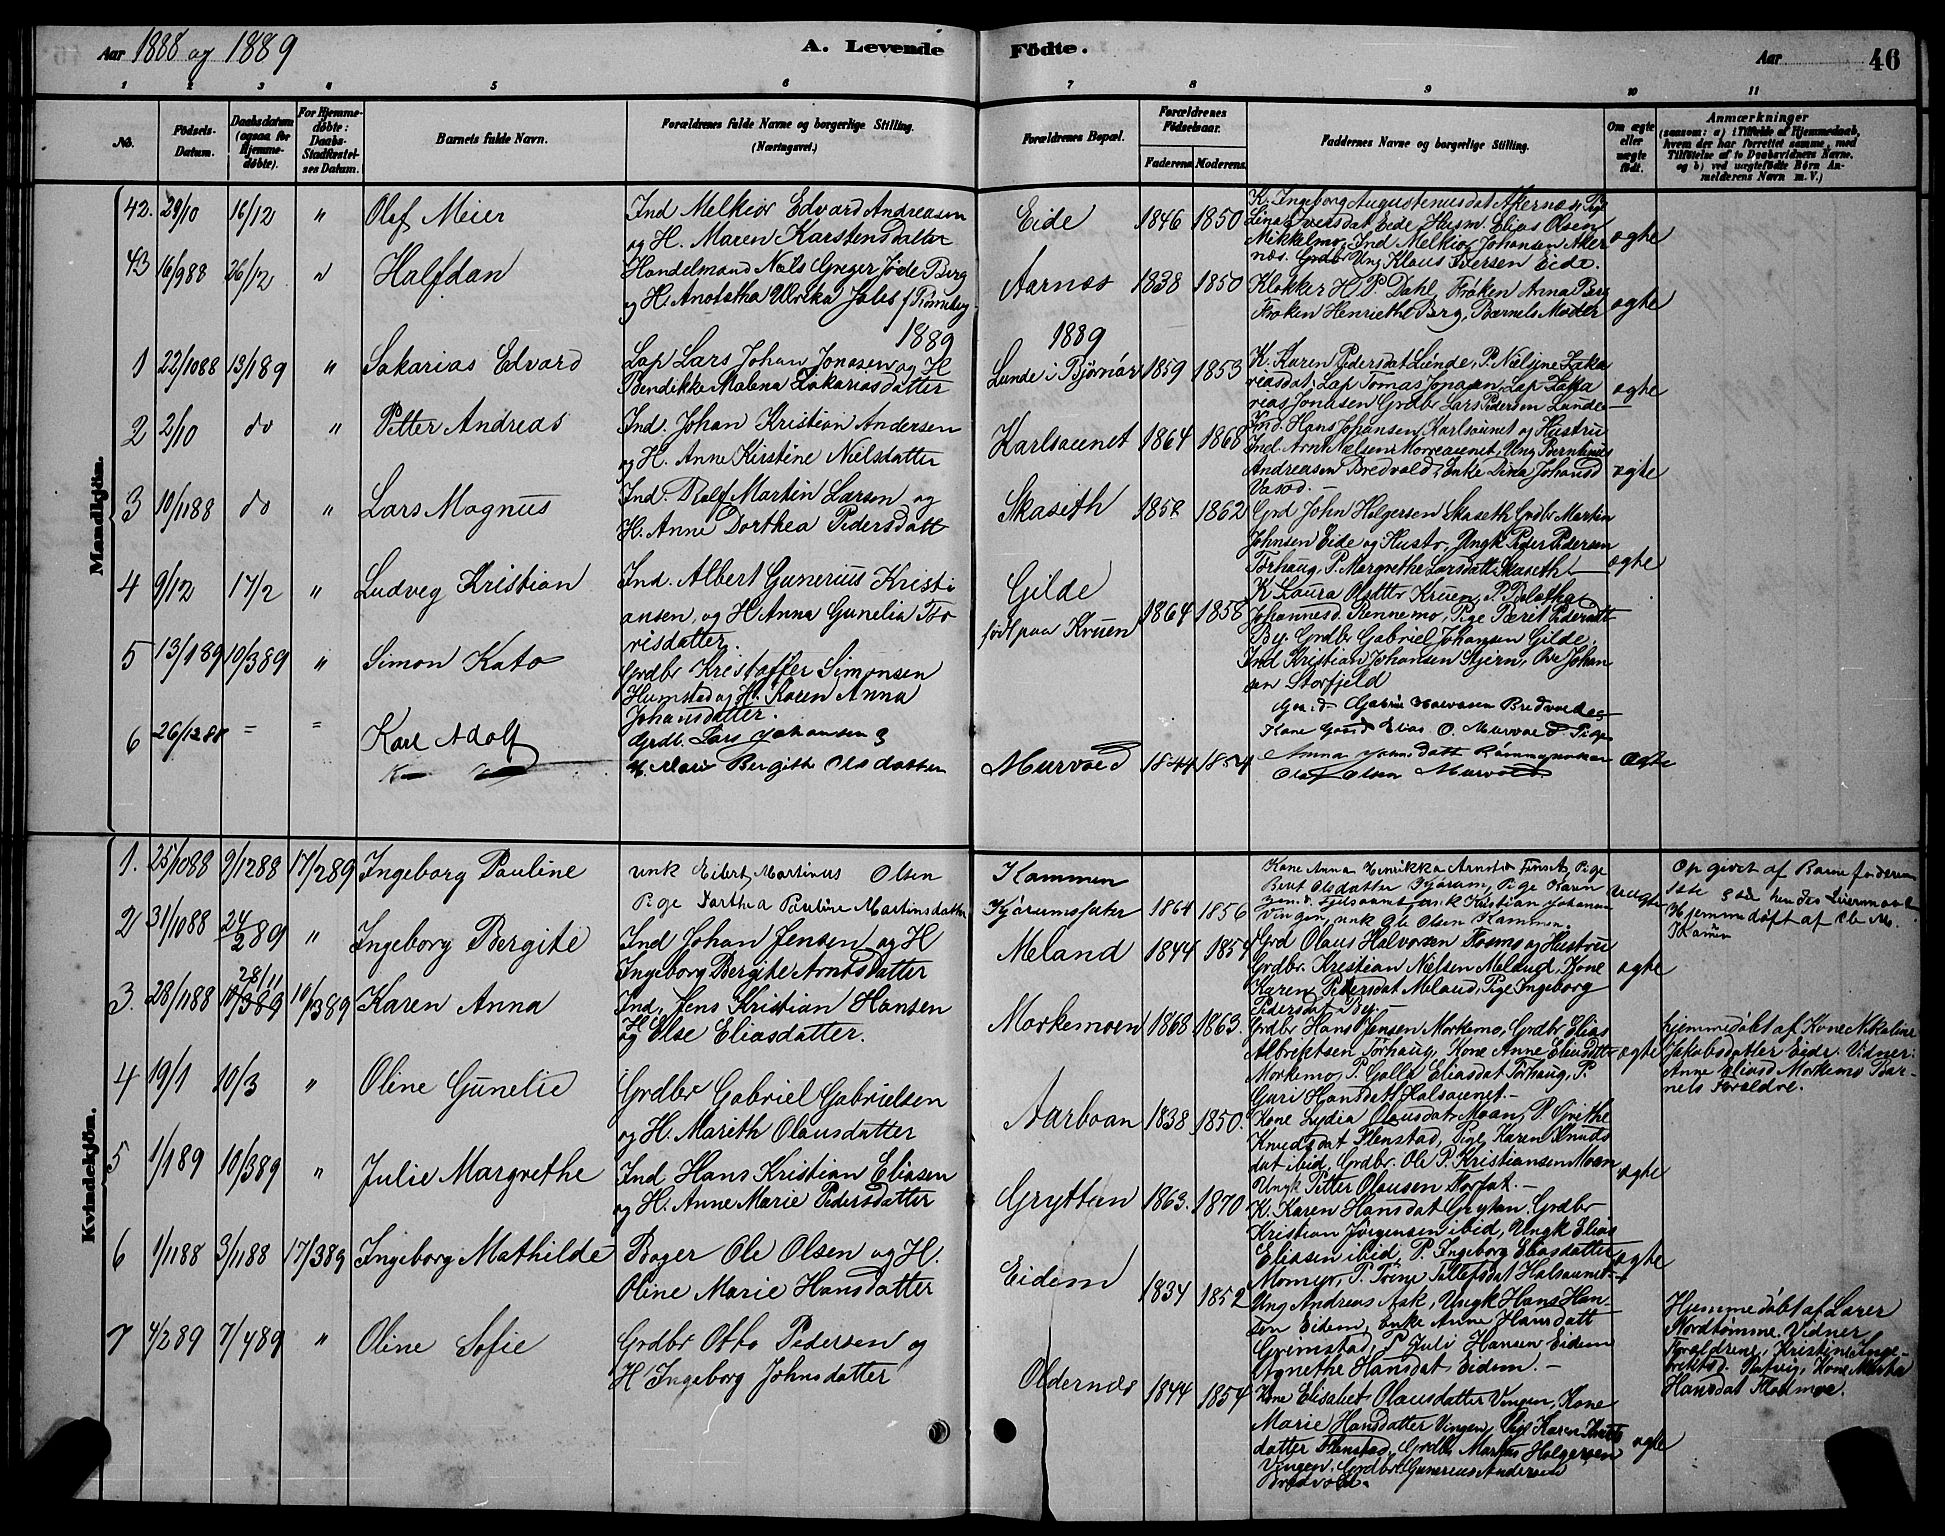 Aar 1888 og 1889
A. Levende
Födte.
Aar
46
1 2 3 4 5 6 7 8 9 10 11
No.
Födsels-
Datum.
Daabsdatum
(ogsaa for
Hjemme-
døbte).
For Hjemme-
døbte:
Daabs-
Stadfæstel-
ses Datum.
Barnets fulde Navn.
Forældrenes fulde Navne og borgerlige Stilling.
(Næringsvei.)
Forældrenes Bopæl.
Forældrenes
Födselsaar.
Faderens.
Moderens.
Faddernes Navne og borgerlige Stilling.
Om ægte
eller
uægte
födt.
Anmærkninger
(saasom: a) i Tilfælde af Hjemmedaab,
hvem der har forrettet samme, med
Tilföielse af to Daabsvidners Navne,
og b) ved uægtefödte Börn An-
melderens Navn m. V.)
Mandkjön.
42. 29/10 16/12 " Olaf Meier
Ind Melkior Edvard Andreasen
og H. Maren Karstensdatter
Eide 1846 1850
K. Ingeborg Augustenusdat Akernæs, Pige
Lina Iversdat Eide, Husm. Elias Olsen
Mikkelmo, Ind Melkior Johansen Aker
næs. Grdbr Ung Klaus Iversen Eide.
ægte
43 16/988 26/12 " Halfdan
Handelmand Nils Greger Jøde Berg
og H. Ulrika
Aarnæs 1838 1850
Klokker H. P. Dahl, Frøken Anna Berg
Frøken Henriethe Berg, Barnets Moder
ægte
1889
1889
1 22/1088 13/189 " Sakarias Edvard
Lap Lars Johan Jonasen og H
Bendikke Malena Zakariasdatter
Lunde i Bjørnør 1859 1853
K. Karen Pedersdat Lunde, P. Nelsine Zaka
reasdat, Lap Tomas Jonasen, Lap Zaka
rias Jonasen Grdbr Lars Pedersen Lunde
ægte
2 2/10 do " Petter Andreas
Ind. Johan Kristian Andersen
og H. Anne Kirstine Nielsdatter
Karlsaunet 1864 1868
Ind. Hans Johansen Karlsaunet og Hustru
Ind Arnt Nielsen Morreaunet, Ung Berntinus
Andreasen Bredvold, Enke Dina Johansd
Vasød. —
ægte
3 10/1188 do " Lars Magnus
Ind. Rolf Martin Larsen og
H. Anne Dorthea Pedersdatt
Skaseth 1858 1862
Grd John Holgersen Skaseth Grdbr Martin
Johnsen Eide og Hustr, Ungk Peder Pedersen
Torhaug, P. Margrethe Larsdatt Skaseth —
ægte
4 9/12 17/2 " Ludvig Kristian
Ind. Albert Gunerius Kristi
ansen, og H. Anna Gunelia Tor
risdatter.
Gilde
født paa Kruen 1864 1858
K Laura Olsdtr Kruen, P.
Johannesd Rennemo, Pige Berit Pedersdatt
By. Grdbr Gabriel Johansen Gilde,
Ind Kristian Johansen Stjern, Ove Johan
sen Storfjeld
5 13/189 10/389 " Simon Kato
Grdbr Kristoffer Simonsen
Humstad og H. Karen Anna
Johansdatter.
6 26/1288 = = Karl Adolf
Grdb. Lars Johansen &
H. Mari Bergith Olsdatter
Murvold 1844 1854
Gaard Gabriel Halvorsen Bredvold og
Kone Gaard Elias O. Murvold Pige
Anna Johnsdatt
Olaf Olsen Murvold
ægte
Kvindekjön.
1. 25/1088 9/1288 17/289 Ingeborg Pauline
unk Eilert Martinus Olsen
Pige Dorthea Pauline Martinsdatter
Kammen
Kjørumsfater 1864 1856
Kone Anna Henrikka Arntsd Pige
Berit Olsdatter Kjørum, Pige Karen
unk Kristian Johansen
Vingen, unk Ole Olsen Kammen.
uægte
Opgivet af Barnefaderen
Hjemmedøft af Ole M.
Kamen
2 31/1088 24/289 " Ingeborg Bergite
Ind Johan Jensen og H
Ingeborg Bergite Arntsdatter
Meland 1844 1854
Grd Olaus Halvorsen Rosmo og Hustru
Grdbr. Kristian Nielsen Meland, Kone
Karen Pedersdat Meland, Pige Ingeborg
Pedersdat By. —
ægte
3. 28/1188 28/11 10/389 10/389 Karen Anna
Ind. Jens Kristian Hansen
og H Else Eliasdatter.
Morkemoen 1868 1863.
Grdbr Hans Jensen Morkemo, Grdbr Elias
Albrektsen Torhaug, Kone Anne Eliasdatt
Morkemo, P. Golla Eliasdat Torhaug, P.
Guri Hansdatt Halsaunet. —
ægte
hjemmedøbt af Kone Nikoline
Jakobsdatter Eide. Vidner:
Anne Eliasd Morkemo Bar-
nets Forældre.
4 19/1 10/3 " Oline Gunelie
Grdbr Gabriel Gabrielsen
og H. Mareth Olausdatter
Aarboan 1838 1850.
Kone Lydia Olausdat Moan, P. Grethe
Knudsdat Flenstad, Pige Karen Knuds
dat ibid, Grdbr. Ole P. Kristiansen Moan
Ungk Petter Olausen Torfat. —
ægte
5 1/189 10/389 " Julie Margrethe
Ind Hans Kristian Eliasen
og H. Anne Marie Pedersdatter
Gryttan 1863. 1870
K. Karen Hansdat Grytan, Grdbr
Kristian Jørgensen ibid, Ungk Elias
Eliasen ibid, P. Ingeborg Eliasdatter
Momyr, P. Trine Tollefsdat Halsaunet
ægte
6 1/1188 3/1188 17/389 Ingeborg Mathilde
Bager Ole Olsen og H.
Oline Marie Hansdatter
Eidem 1834 1852
Ung Andreas Ask, Ungk Hans Han-
sen Eidem, Enke Anne Hansdatt
Grimstad, P Juli Hansen Eidem
Agnethe Hansdat Eidem. —
Hjemmedøbt af Lærer
Nordtømme. Vidner
Forældrene, Kristine Inge-
briktsd. Ratvig, Kone Marta
Hansdat
7 4/289 7/489 " Oline Sofie
Grdbr Otto Pedersen og
H Ingeborg Johnsdatter
Oldernæs 1844 1854
Kone Elisabet Olausdatter Vingen, Kone
Marie Hansdatter Vingen, Pige Karen Knuds
datter Flenstad, Grdbr Markus Holgersen
Vingen, Grdbr Gunerius Andersen
Bredvold.
ægte